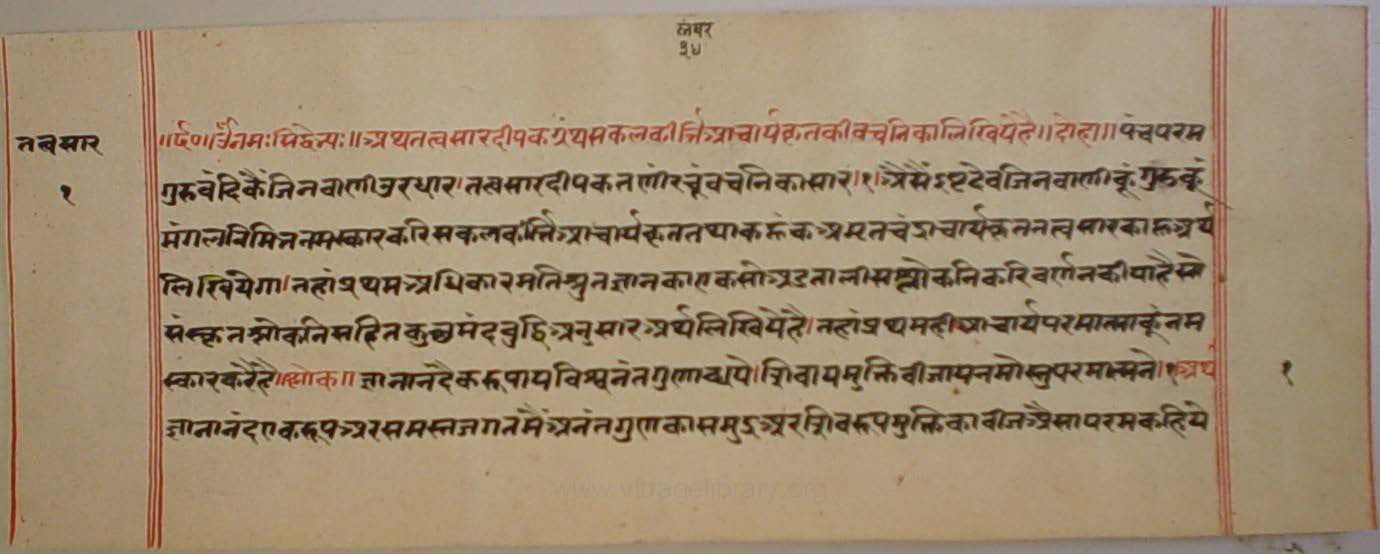 नंबर
१४
तत्वसार
१
॥र्द०॥ॐनमःसिद्धेभ्यः॥अथतत्वसारदीपकग्रंथसकलकीर्त्तिआचार्यकृतकीवचनिकालिखियेहै॥दोहा॥पंचपरम
गुरुवंदिकैंजिनवाणीउरधार।तत्वसारदीपकतणींरचूंवचनिकासार।१।अैसैंइष्टदेवजिनवाणीकूंगुरुकूं
मंगलनिमित्तनमस्कारकरिसकलकीर्त्तिआचार्यकृततथाकहुंकअमृतचंद्राचार्यकृततत्वसारकाहूअर्थ
लिखियेगा।तहांप्रथमअधिकारमतिश्रुतज्ञानकाएकसोअडतालीसश्लोकनिकरिवर्णनकीयाहैसो
संस्कृतश्लोकनिसहितकुछमंदबुद्धिअनुसारअर्थलिखियेहै।तहांप्रथमहीआचार्यपरमात्माकूंनम
स्कारकरैहै॥श्लोक॥ज्ञानानंदैकरूपायविश्वनंतगुणाब्धये।शिवायमुक्तिबीजायनमोस्तुपरमात्मने।१अर्थ
ज्ञानानंदएकरूपअरसमस्तजगतमैंअनंतगुणकासमुद्रअरशिवरूपमुक्तिकाबीजअैसापरमकहिये
१
www.vitragelibrary.org